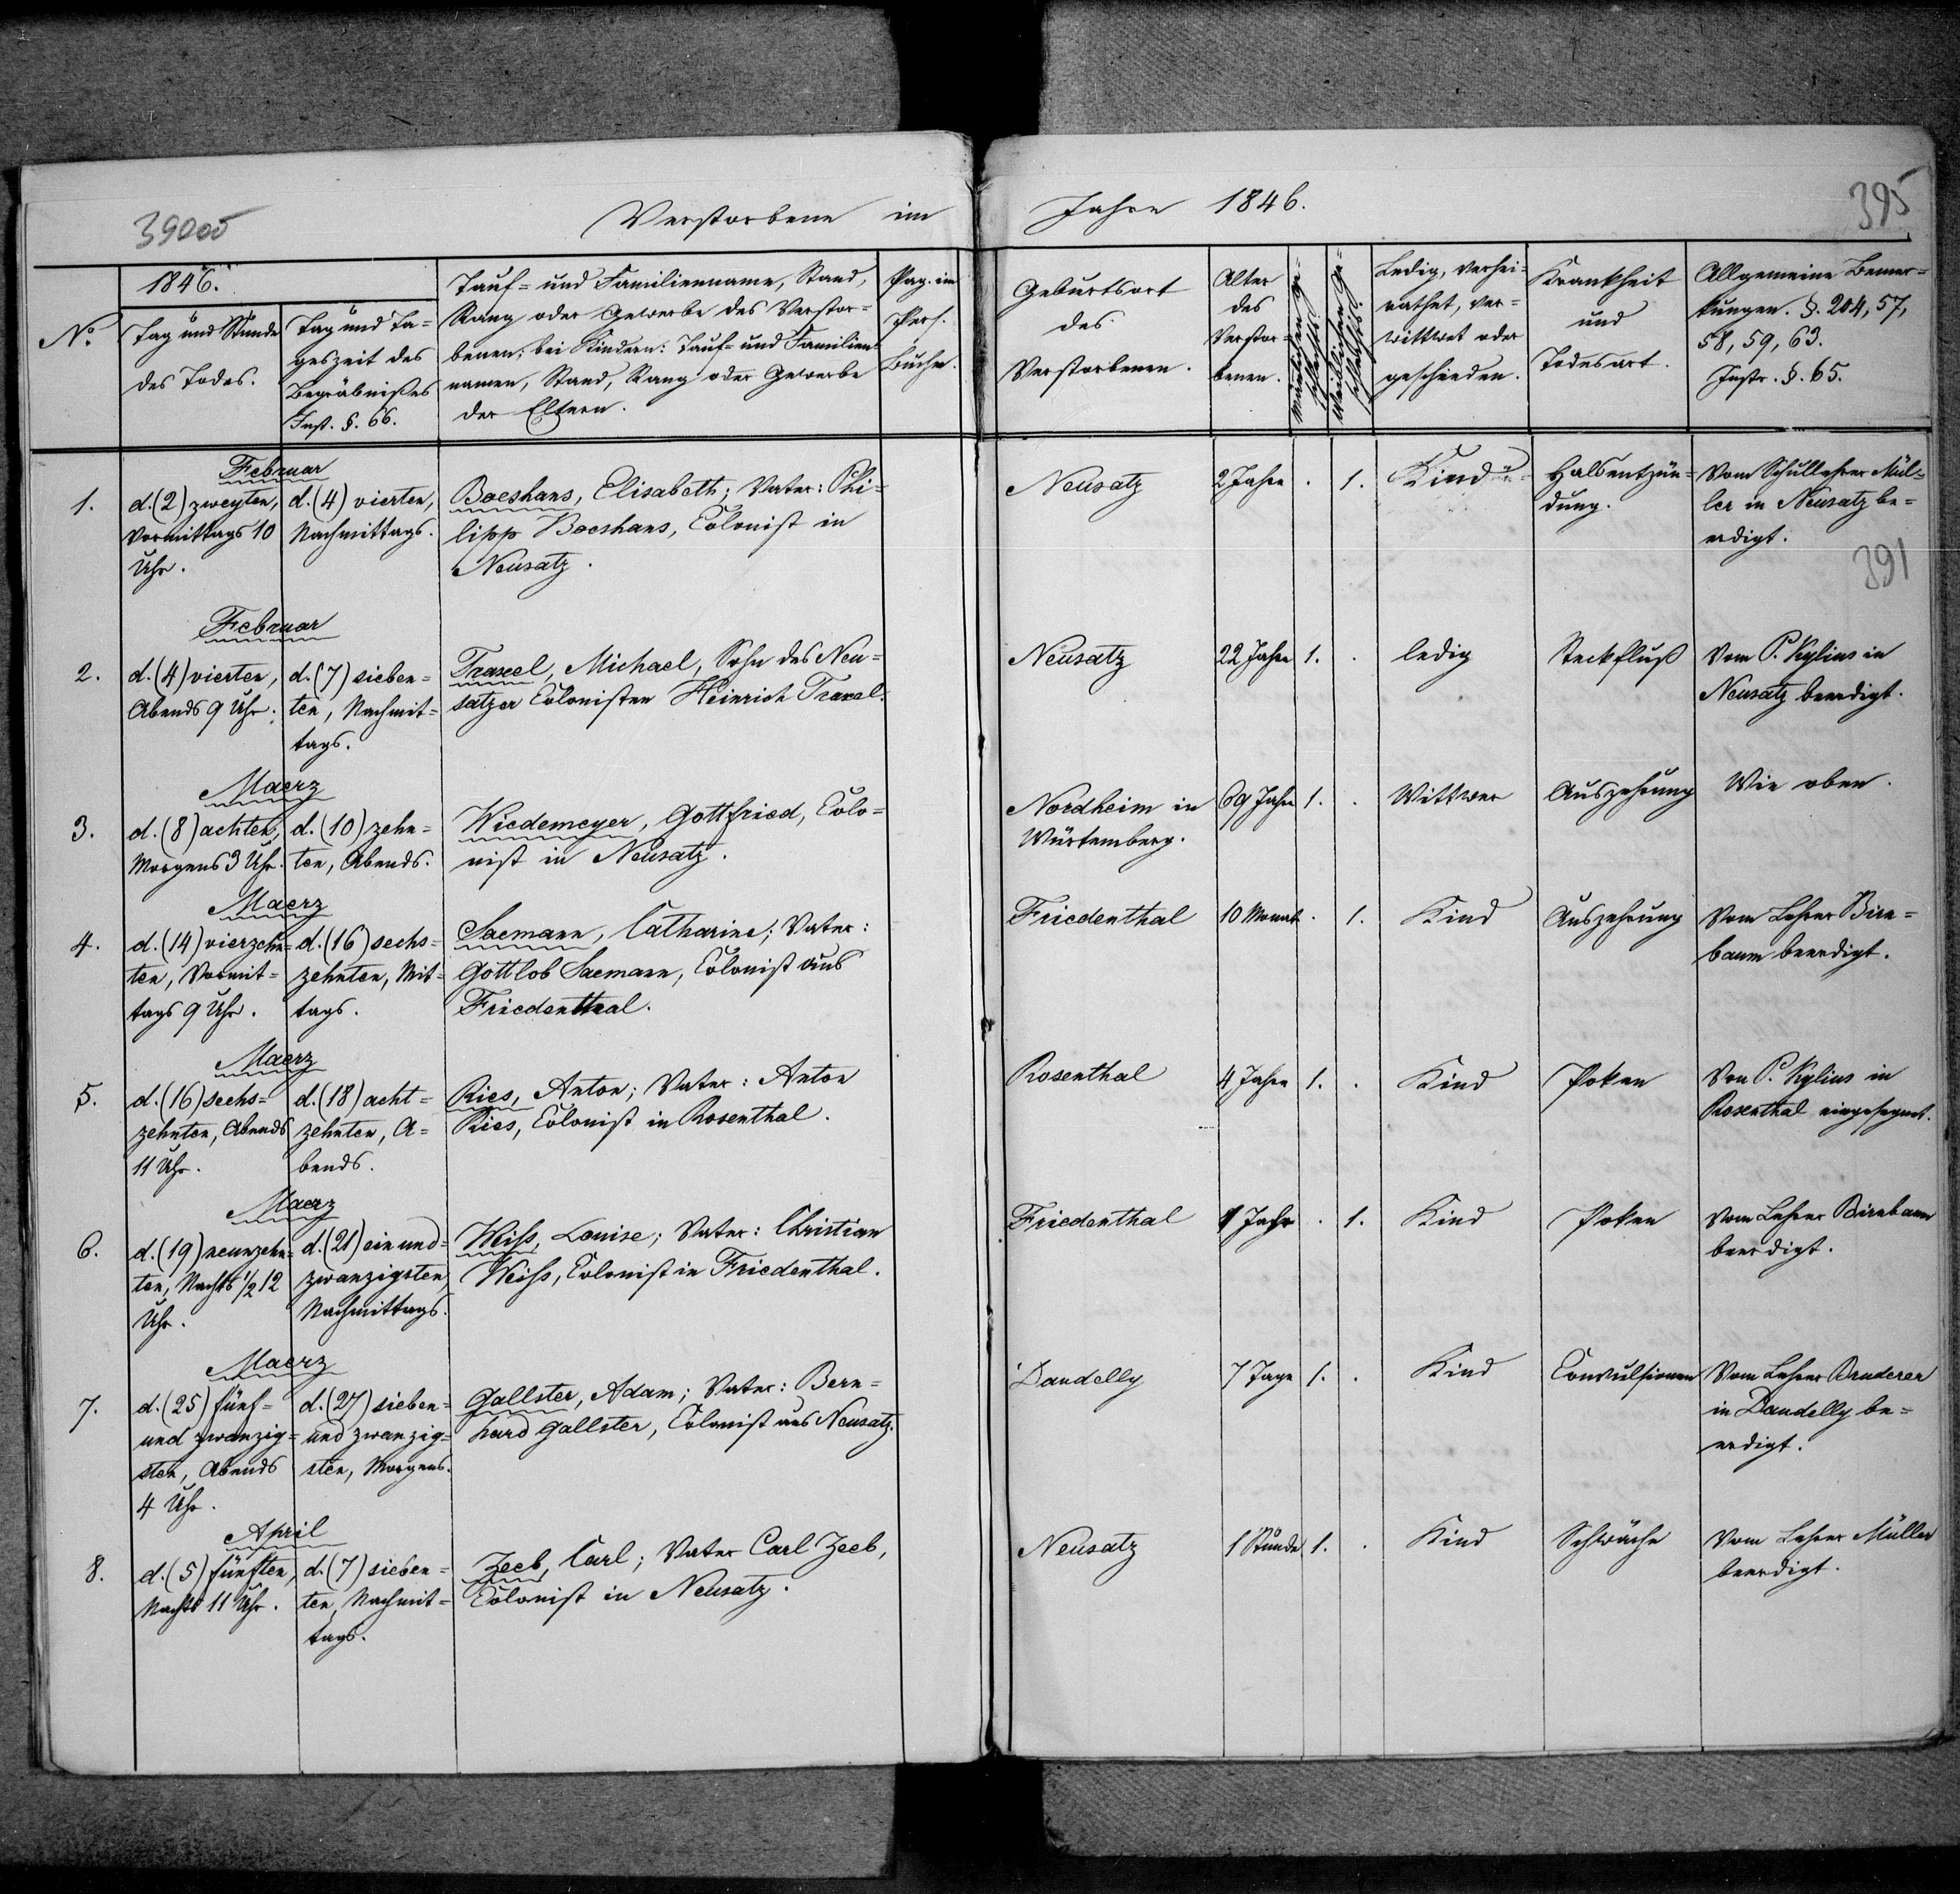 39005
Verstorbene im
Jahre 1846.
395
No
1846.
Tag und Stunde
des Todes.
Tag und Ta-
geszeit des
Begräbnißes
Inst. §. 66.
Tauf- und Familienname, Stand,
Rang oder Gewerbe des Verstor-
benen; bei Kindern: Tauf- und Familien-
namen, Stand, Rang oder Gewerbe
der Eltern.
Pag. im
Pers.
Buche.
Geburtsort
des
Verstorbenen.
Alter
des
Verstor-
benen.
Männlichen Ge-
schlechts.
Weiblichen Ge-
schlechts.
Ledig, verhei-
rathet, ver-
wittwet oder
geschieden.
Krankheit
und
Todesart.
Allgemeine Bemer-
kungen. §. 204, 57,
58, 59, 63.
Instr. §. 65.
Februar
1.
d. (2) zweyten,
Vormittags 10
Uhr.
d. (4) vierten,
Nachmittags.
Boeshans, Elisabeth; Vater: Phi-
lipp Boeshans, Colonist in
Neusatz.
Neusatz
2 Jahre
. 1.
Kind
Halsentzün-
dung.
Vom Schullehrer Mül-
ler in Neusatz be-
erdigt.
391
Februar
2.
d. (4) vierten,
Abends 9 Uhr.
d. (7) sieben-
ten, Nachmit-
tags.
Traxel, Michael, Sohn des Neu-
satzer Colonisten Heinrich Traxel.
Neusatz
22 Jahre
1. .
ledig
Steckfluß
Vom P. Kylius in
Neusatz beerdigt.
Maerz
3.
d. (8) achten,
Morgens 3 Uhr.
d. (10) zehn-
ten, Abends.
Wiedemeyer, Gottfried, Colo-
nist in Neusatz.
Nordheim in
Würtemberg.
69 Jahre
1. .
Wittwer
Auszehrung
Wie oben.
Maerz
4.
d. (14) vierzehn-
ten, Vormit-
tags 9 Uhr.
d. (16) sechs-
zehnten, Mit-
tags.
Saemann, Catharine; Vater:
Gottlob Saemann, Colonist aus
Friedenthal.
Friedenthal
10 Monat
. 1.
Kind
Auszehrung
Vom Lehrer Birn-
baum beerdigt.
Maerz
5.
d. (16) sechs-
zehnten, Abends
11 Uhr.
d. (18) acht-
zehnten, A-
bends.
Ries, Anton; Vater: Anton
Ries, Colonist in Rosenthal.
Rosenthal
4 Jahre
1. .
Kind
Poken
Von P. Kylius in
Rosenthal eingesegnet.
Maerz
6.
d. (19) neunzehn-
ten, Nachts 1/2 12
Uhr.
d. (21) ein und
zwanzigsten,
Nachmittags.
Weiss, Louise; Vater: Christian
Weiss, Colonist in Friedenthal.
Friedenthal
1 Jahr
. 1.
Kind
Poken
Vom Lehrer Birnbaum
beerdigt.
Maerz
7.
d. (25) fünf-
und zwanzig-
sten, Abends
4 Uhr.
d. (27) sieben-
und zwanzig-
sten, Morgens.
Gallster, Adam; Vater: Bern-
hard Gallster, Colonist aus Neusatz.
Daudelly
7 Tage
1. .
Kind
Convulsionen
Vom Lehrer Bruderer
in Daudelly be-
erdigt.
April
8.
d. (5) fünften,
Nachts 11 Uhr.
d. (7) sieben-
ten, Nachmit-
tags.
Zeeb, Carl; Vater Carl Zeeb,
Colonist in Neusatz.
Neusatz
1 Stunde
1. .
Kind
Schwäche
Vom Lehrer Müller
beerdigt.